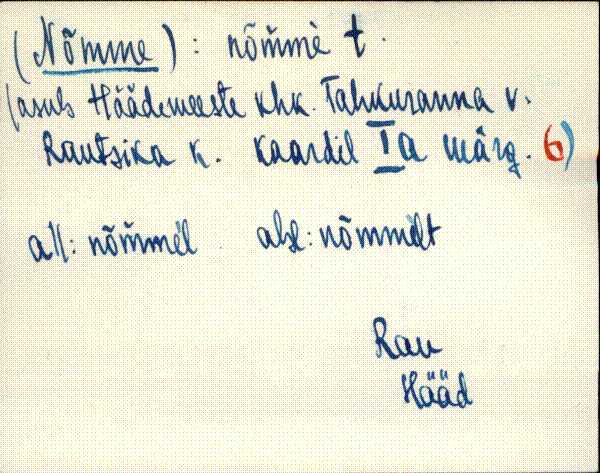 (Nõmme): nõm̆mè t.
(asub Häädemeeste khk. Tahkuranna v.
Rautsika k. kaardil Ia märg. 6)
all: nõm̆mèl abl: nõmmèlt
Rau
Hääd